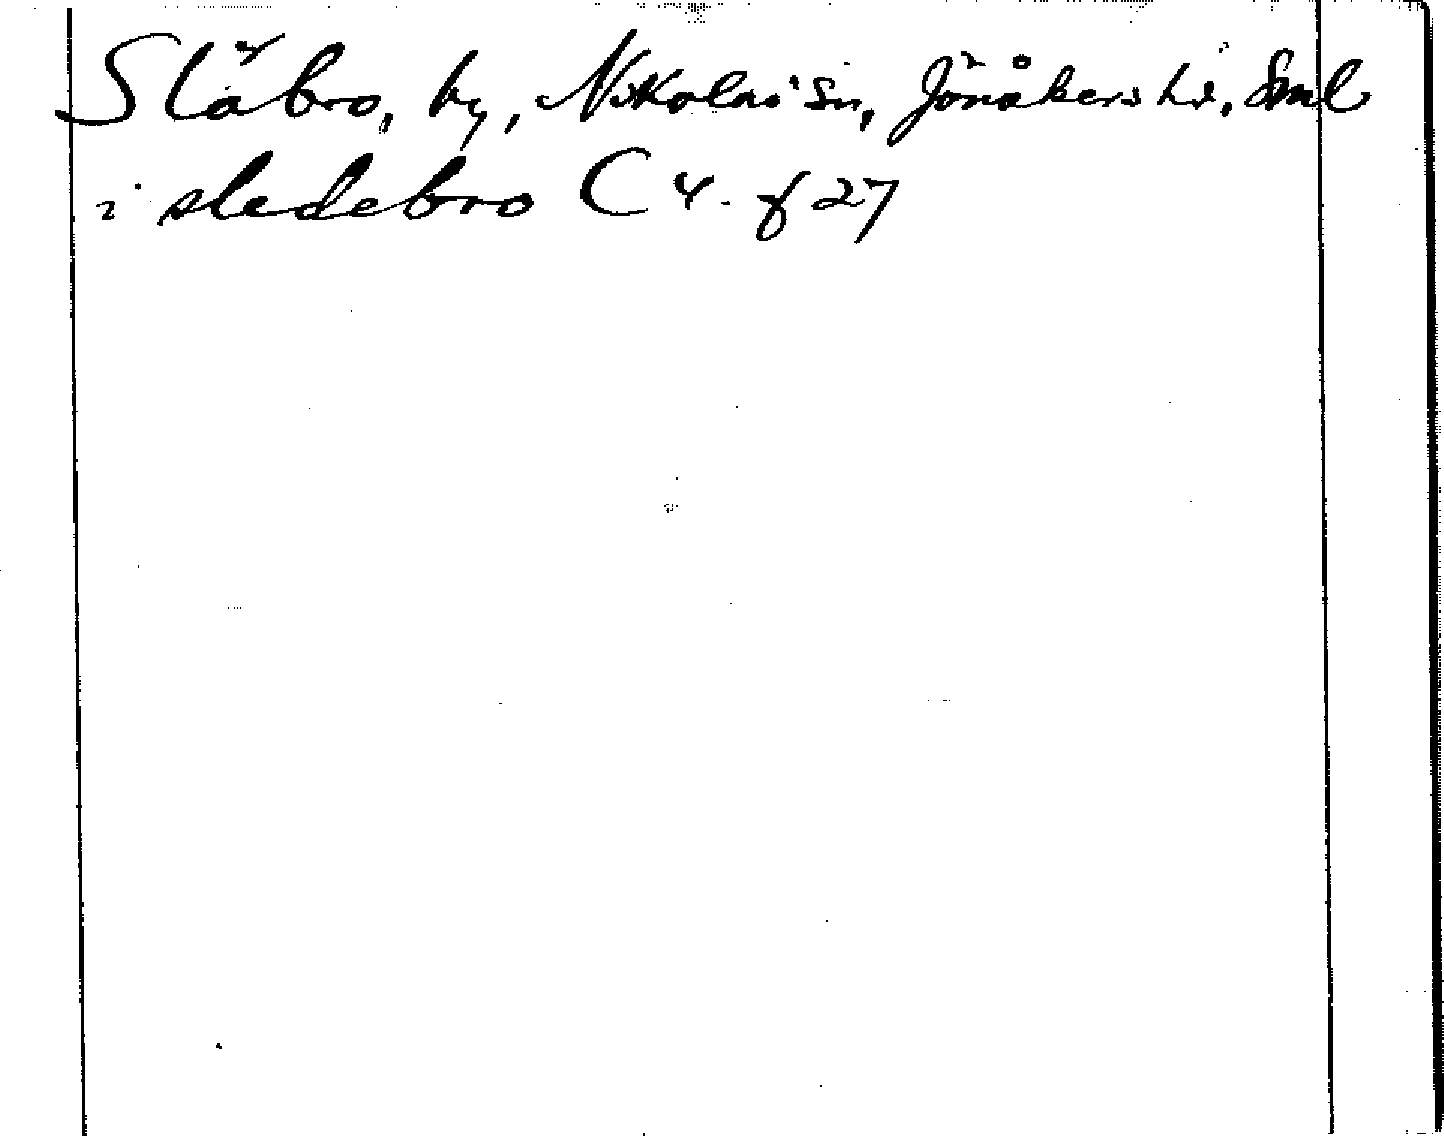 Släbro, by, Nikolai sn, Jönåkers hd, Sml
i sledebro C 4. f 27